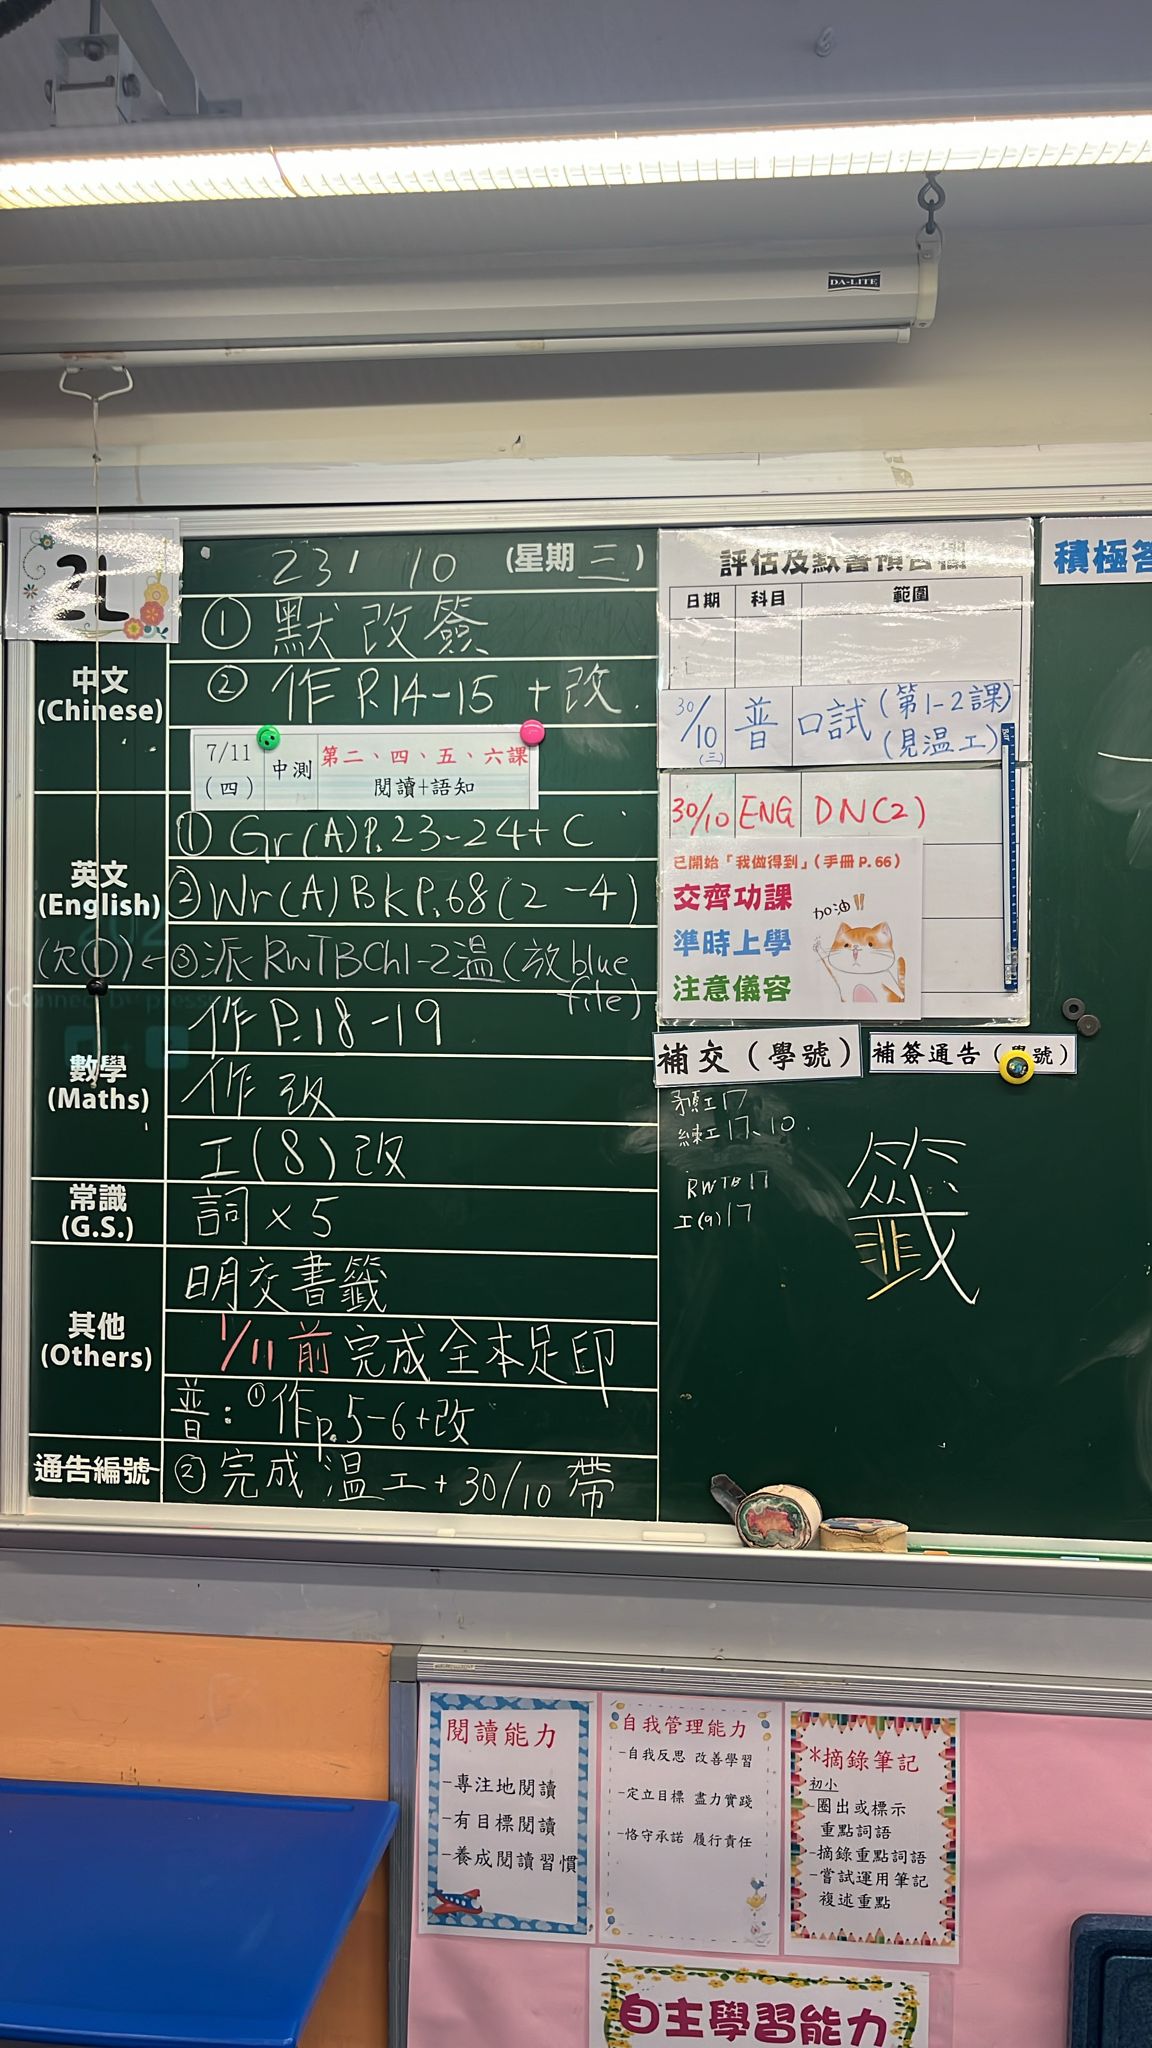 DA-LITE
2L
23/10 (星期三)
中文
(Chinese)
① 默改簽
② 作P.14-15+改.
7/11
(四)
中測
第二、四、五、六課
閱讀+語知
英文
(English)
① Gr(A)P.23-24+C
② Wr(A)BkP.68(2-4)
(欠①)←③派RWTBCh1-2溫(放blue file)
數學
(Maths)
作P.18-19
作改
工(8)改
常識
(G.S.)
詞×5
其他
(Others)
明交書籤
1/11前完成全本足印
普:①作p.5-6+改
通告編號
②完成溫工+30/10帶
評估及默書預告欄
日期 科目 範圍
30/10(三) 普 口試(第1-2課)
(見溫工)
30/10 ENG DN(2)
已開始「我做得到」(手冊P.66)
交齊功課
準時上學
注意儀容
加油!!
積極答
補交(學號)
補簽通告(學號)
預工17
練工17、10.
RWTB17
工(9)17
籤
閱讀能力
-專注地閱讀
-有目標閱讀
-養成閱讀習慣
自我管理能力
-自我反思 改善學習
-定立目標 盡力實踐
-恪守承諾 履行責任
*摘錄筆記
初小
-圈出或標示
重點詞語
-摘錄重點詞語
-嘗試運用筆記
複述重點
自主學習能力